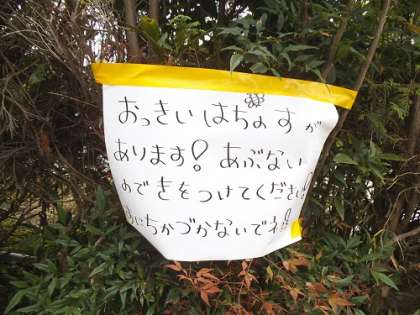 おっきい はちのす が
あります! あぶない
ので きをつけてください!
ちかづかないでネ!